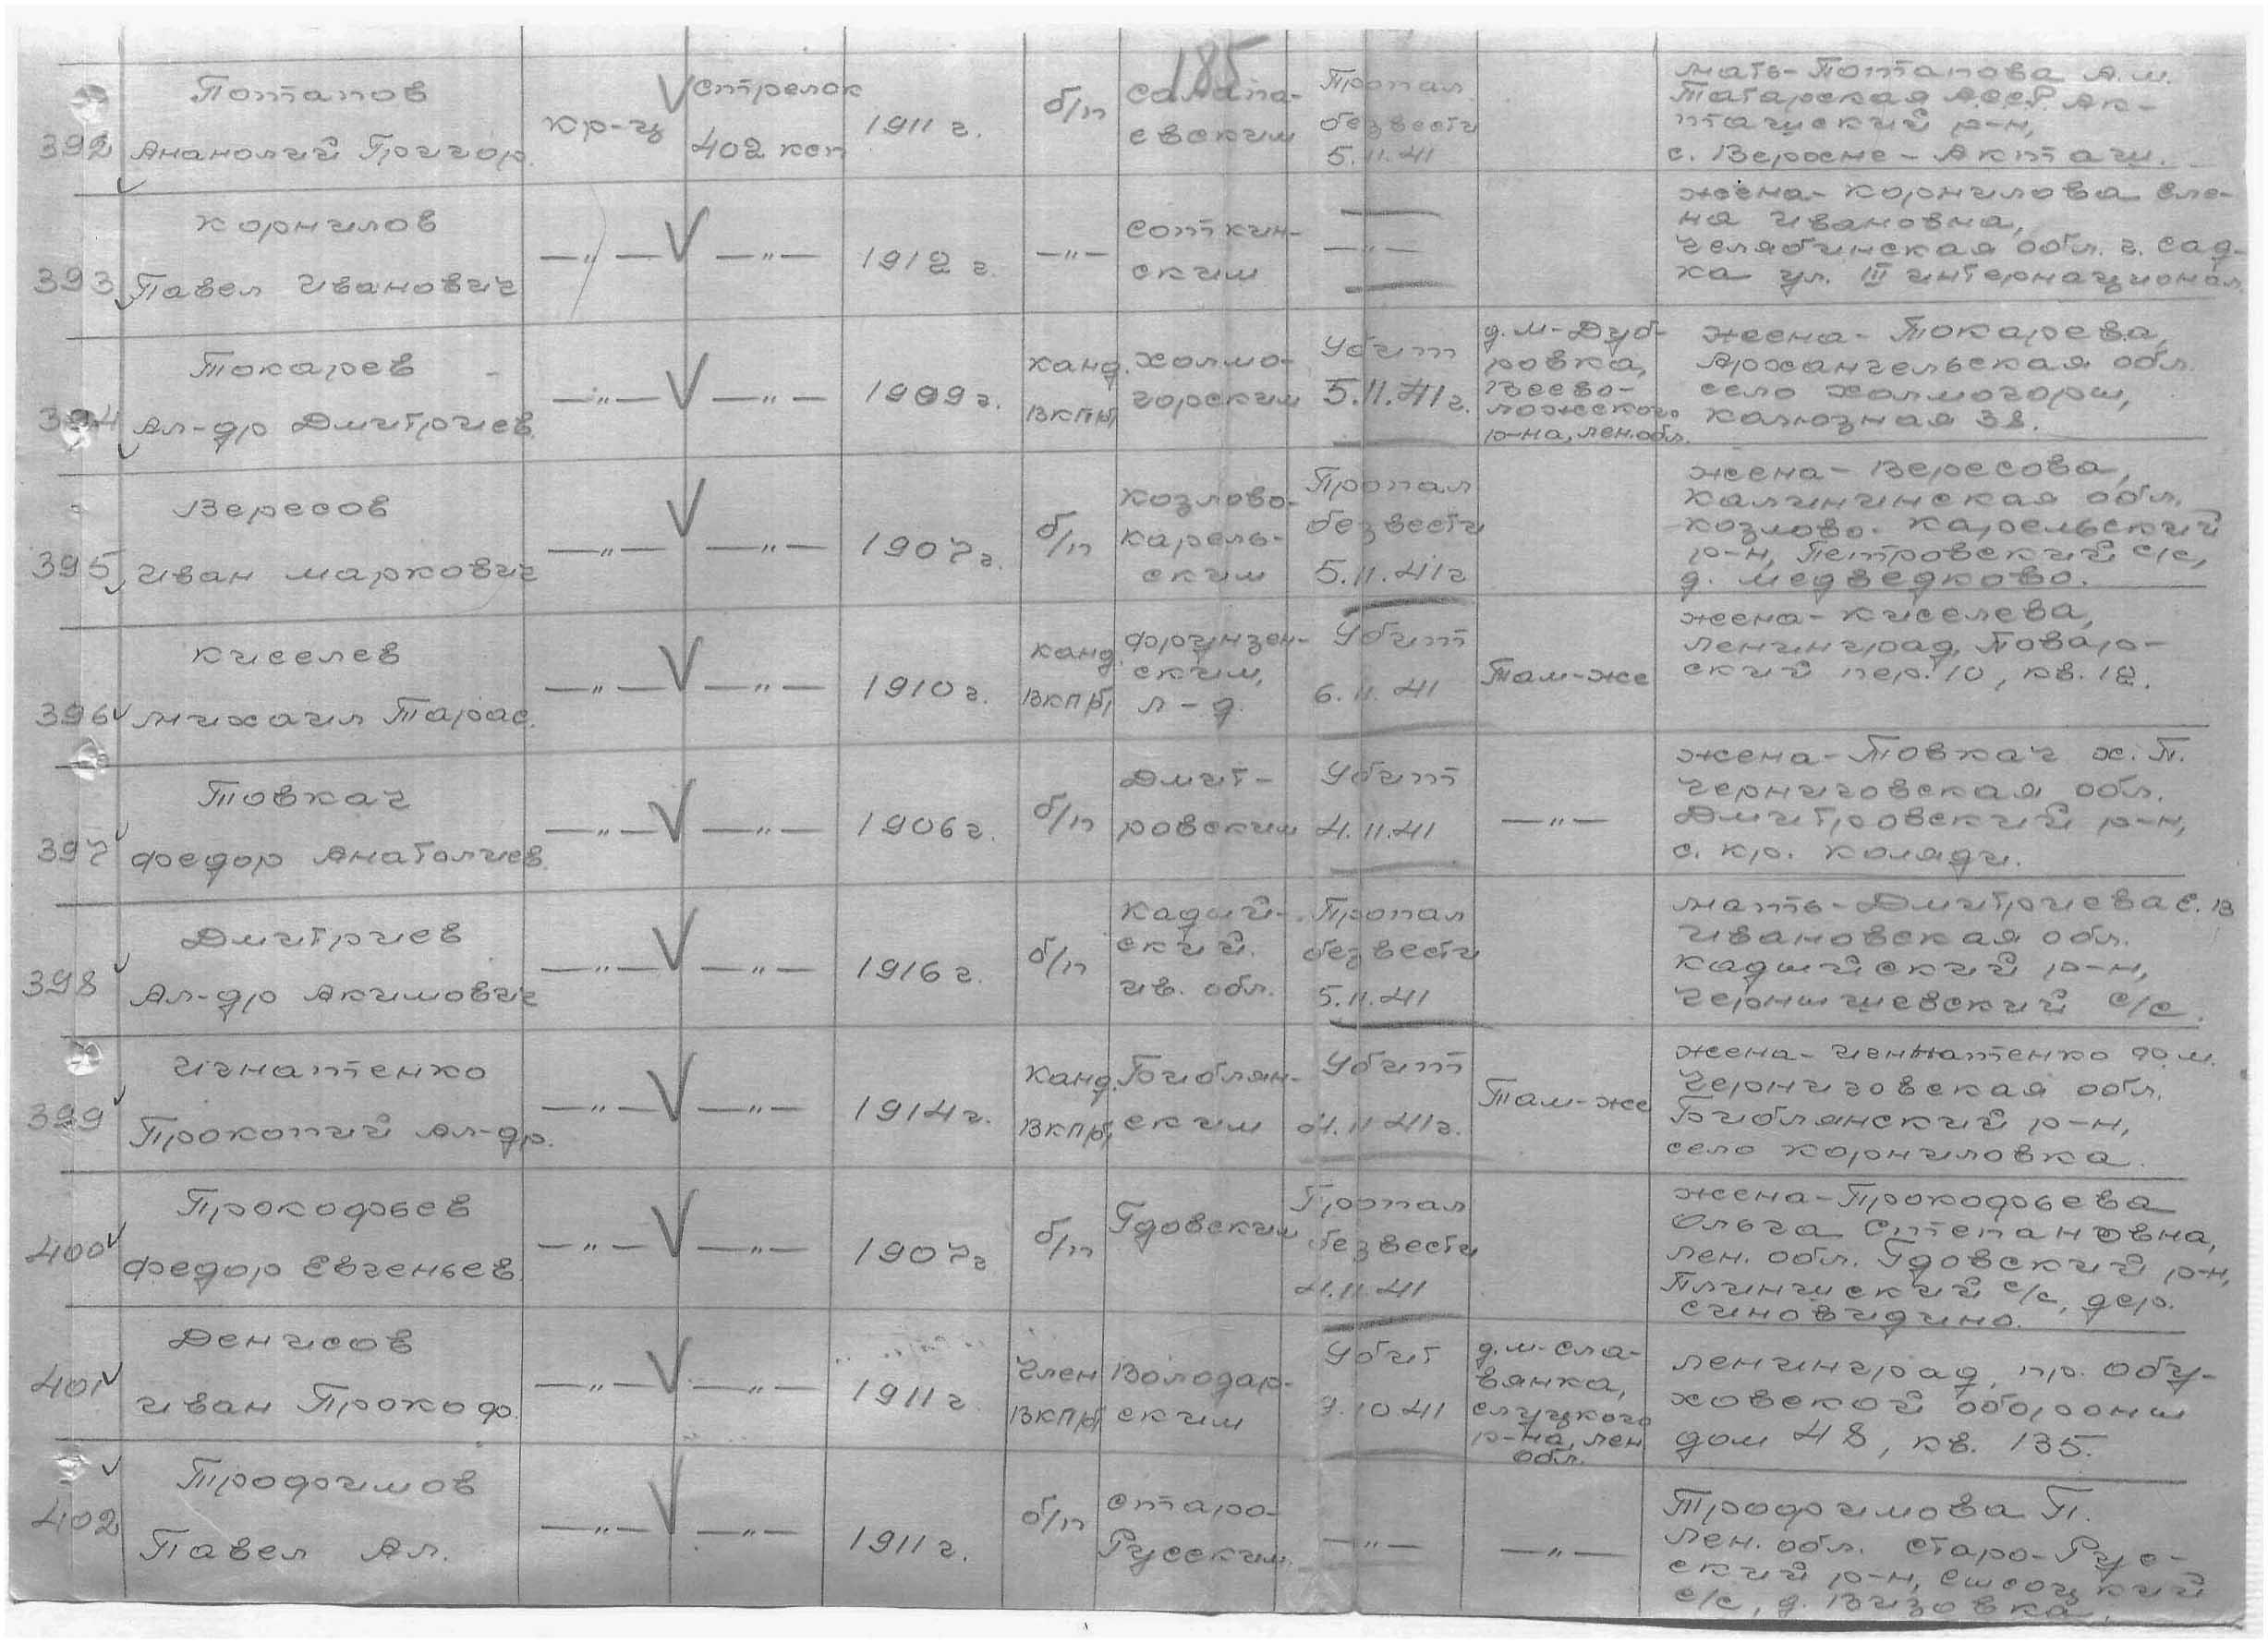 185
392
Потапов
Ананолий Григор.
кр-ц
Стрелок
402 ксп
1911 г.
б/п
евским
Пропал
безвести
5.11.41
мать-Потапова А.М.
Татарская АССР. Ак-
ташский р-н,
с. Верхне-Акташ.
393
Корнилов
Павел Иванович
—"—
—"—
1912 г.
—"—
соткин-
ским
—"—
жена-Корнилова Еле-
на Ивановна,
Челябинская обл. г. Сад-
ка ул. III интернационал.
394
Токарев
Ал-др Дмитриев.
—"—
—"—
1909 г.
канд.
ВКП/б/
Холмо-
горским
Убит
5.11.41г.
д. М-Дуб-
ровка,
Всево-
ложского
р-на, лен.обл.
жена-Токарева,
Архангельская обл.
село Холмогоры,
38.
395
Вересов
Иван Маркович
—"—
—"—
1907г.
б/п
Козлово-
карель-
ским
Пропал
безвести
5.11.41г
жена-Вересова,
Калининская обл.
Козлово-Карельский
р-н, Петровский с/с,
д. Медведково.
396
Киселев
Михаил Тарас.
—"—
—"—
1910г.
канд.
ВКП/б/
Фрунзен-
ским,
л-д.
Убит
6.11.41
Там-же
жена-Киселева,
Ленинград, Поваро-
ский пер. 10, кв. 12.
397
Товкач
Федор Анатолиев.
—"—
—"—
1906г.
б/п
Дмит-
ровским
Убит
4.11.41
—"—
жена-Товкач Х.П.
Черниговская обл.
Дмитровский р-н,
с. Кр. Коляди.
398
Дмитриев
Ал-др Акимович
—"—
—"—
1916г.
б/п
Кадый-
ский.
ив. обл.
Пропал
безвести
5.11.41
мать-Дмитриева Е.В
Ивановская обл.
Кадыйский р-н,
Чернышевский с/с.
399
Игнатенко
Прокопий Ал-др.
—"—
—"—
1914г.
канд.
ВКП/б/
Библян-
ским
Убит
4.11.41г.
Там-же
жена-Игннатенко Ф.М.
Черниговская обл.
Библянский р-н,
село Корниловка.
400
Прокофьев
Федор Евгеньев.
—"—
—"—
1907г
б/п
Гдовским
Пропал
безвести
4.11.41
жена-Прокофьева
Ольга Степановна,
Лен. обл. Гдовский р-н,
с/с, дер.
401
Денисов
Иван Прокоф.
—"—
—"—
1911г
Член
ВКП/б/
Володар-
ским
Убит
9.10 41
д. М-Сла-
вянка,
Слуцкого
р-на, лен
обл.
Ленинград, пр. Обу-
ховской обороны
дом 48, кв. 135.
402
Трофимов
Павел Ал.
—"—
—"—
1911г.
б/п
Старо-
Русским
—"—
—"—
Трофимова П.
Лен. обл. Старо-Рус-
ский р-н,
с/с, д. Визовка.